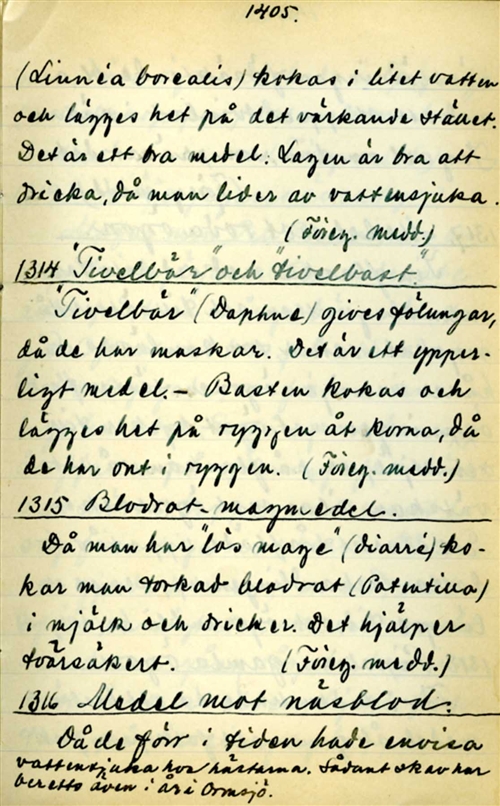 1405.
(Linnéa borealis) kokas i litet vatten
och lägges het på det värkande stället.
Det är ett bra medel. Lagen är bra att
dricka, då man lider av vattensjuka.
(Föreg. medd.)
1314 "Tivelbär" och "tivelbast".
"Tivelbär" (Daphne) gives fölungar,
då de har maskar. Det är ett ypper-
ligt medel. – Basten kokas och
lägges het på ryggen åt korna, då
de har ont i ryggen. (Föreg. medd.)
1315 Blodrot-magmedel.
Då man har "lös mage" (diarré) ko-
kar man torkad blodrot (Potentilla)
i mjölk och dricker. Det hjälper
tvärsäkert. (Föreg. medd.)
1316 Medel mot näsblod.
Då de förr i tiden hade envisa
vattensjuka hos hästarna. Sådant skav har
beretts även i år i Ormsjö.